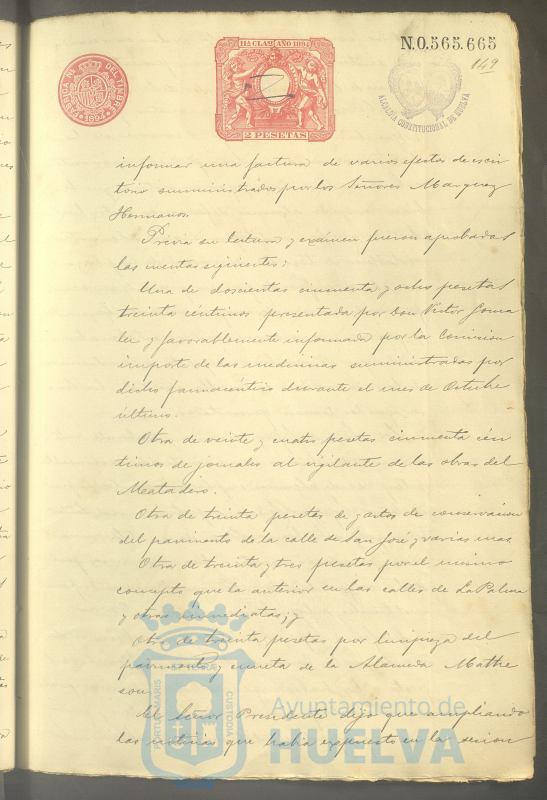 N.0.565.665
149
11ª CLASE AÑO 1894
FABRICA Nª DEL TIMBRE
1894
2 PESETAS
ALCALDIA CONSTITUCIONAL DE HUELVA
informar una factura de varios efectos de escri
torio suministrados por los Señores Marquez
Hermanos.
Previa su lectura y exámen fueron aprobadas
las cuentas siguientes:
Una de doscientas cincuenta y ocho pesetas
treinta céntimos presentada por Don Victor Gonza
lez y favorablemente informada por la Comision
importe de las medicinas suministradas por
dicho farmacéutico durante el mes de Octubre
último.
Otra de veinte y cuatro pesetas cincuenta cén
timos de jornales al vigilante de las obras del
Matadero.
Otra de treinta pesetas de gastos de conservacion
del pavimento de la calle de San José y varias mas.
Otra de treinta y tres pesetas por el mismo
concepto que la anterior en las calles de La Palma
y otras inmediatas; y
Otra de treinta pesetas por limpieza del
pavimento y cuneta de la Alameda Mathe
son.
El Señor Presidente dijo que ampliando
las noticias que habia expuesto en la sesion
PORTUS MARIS
CUSTODIA
Ayuntamiento de
HUELVA